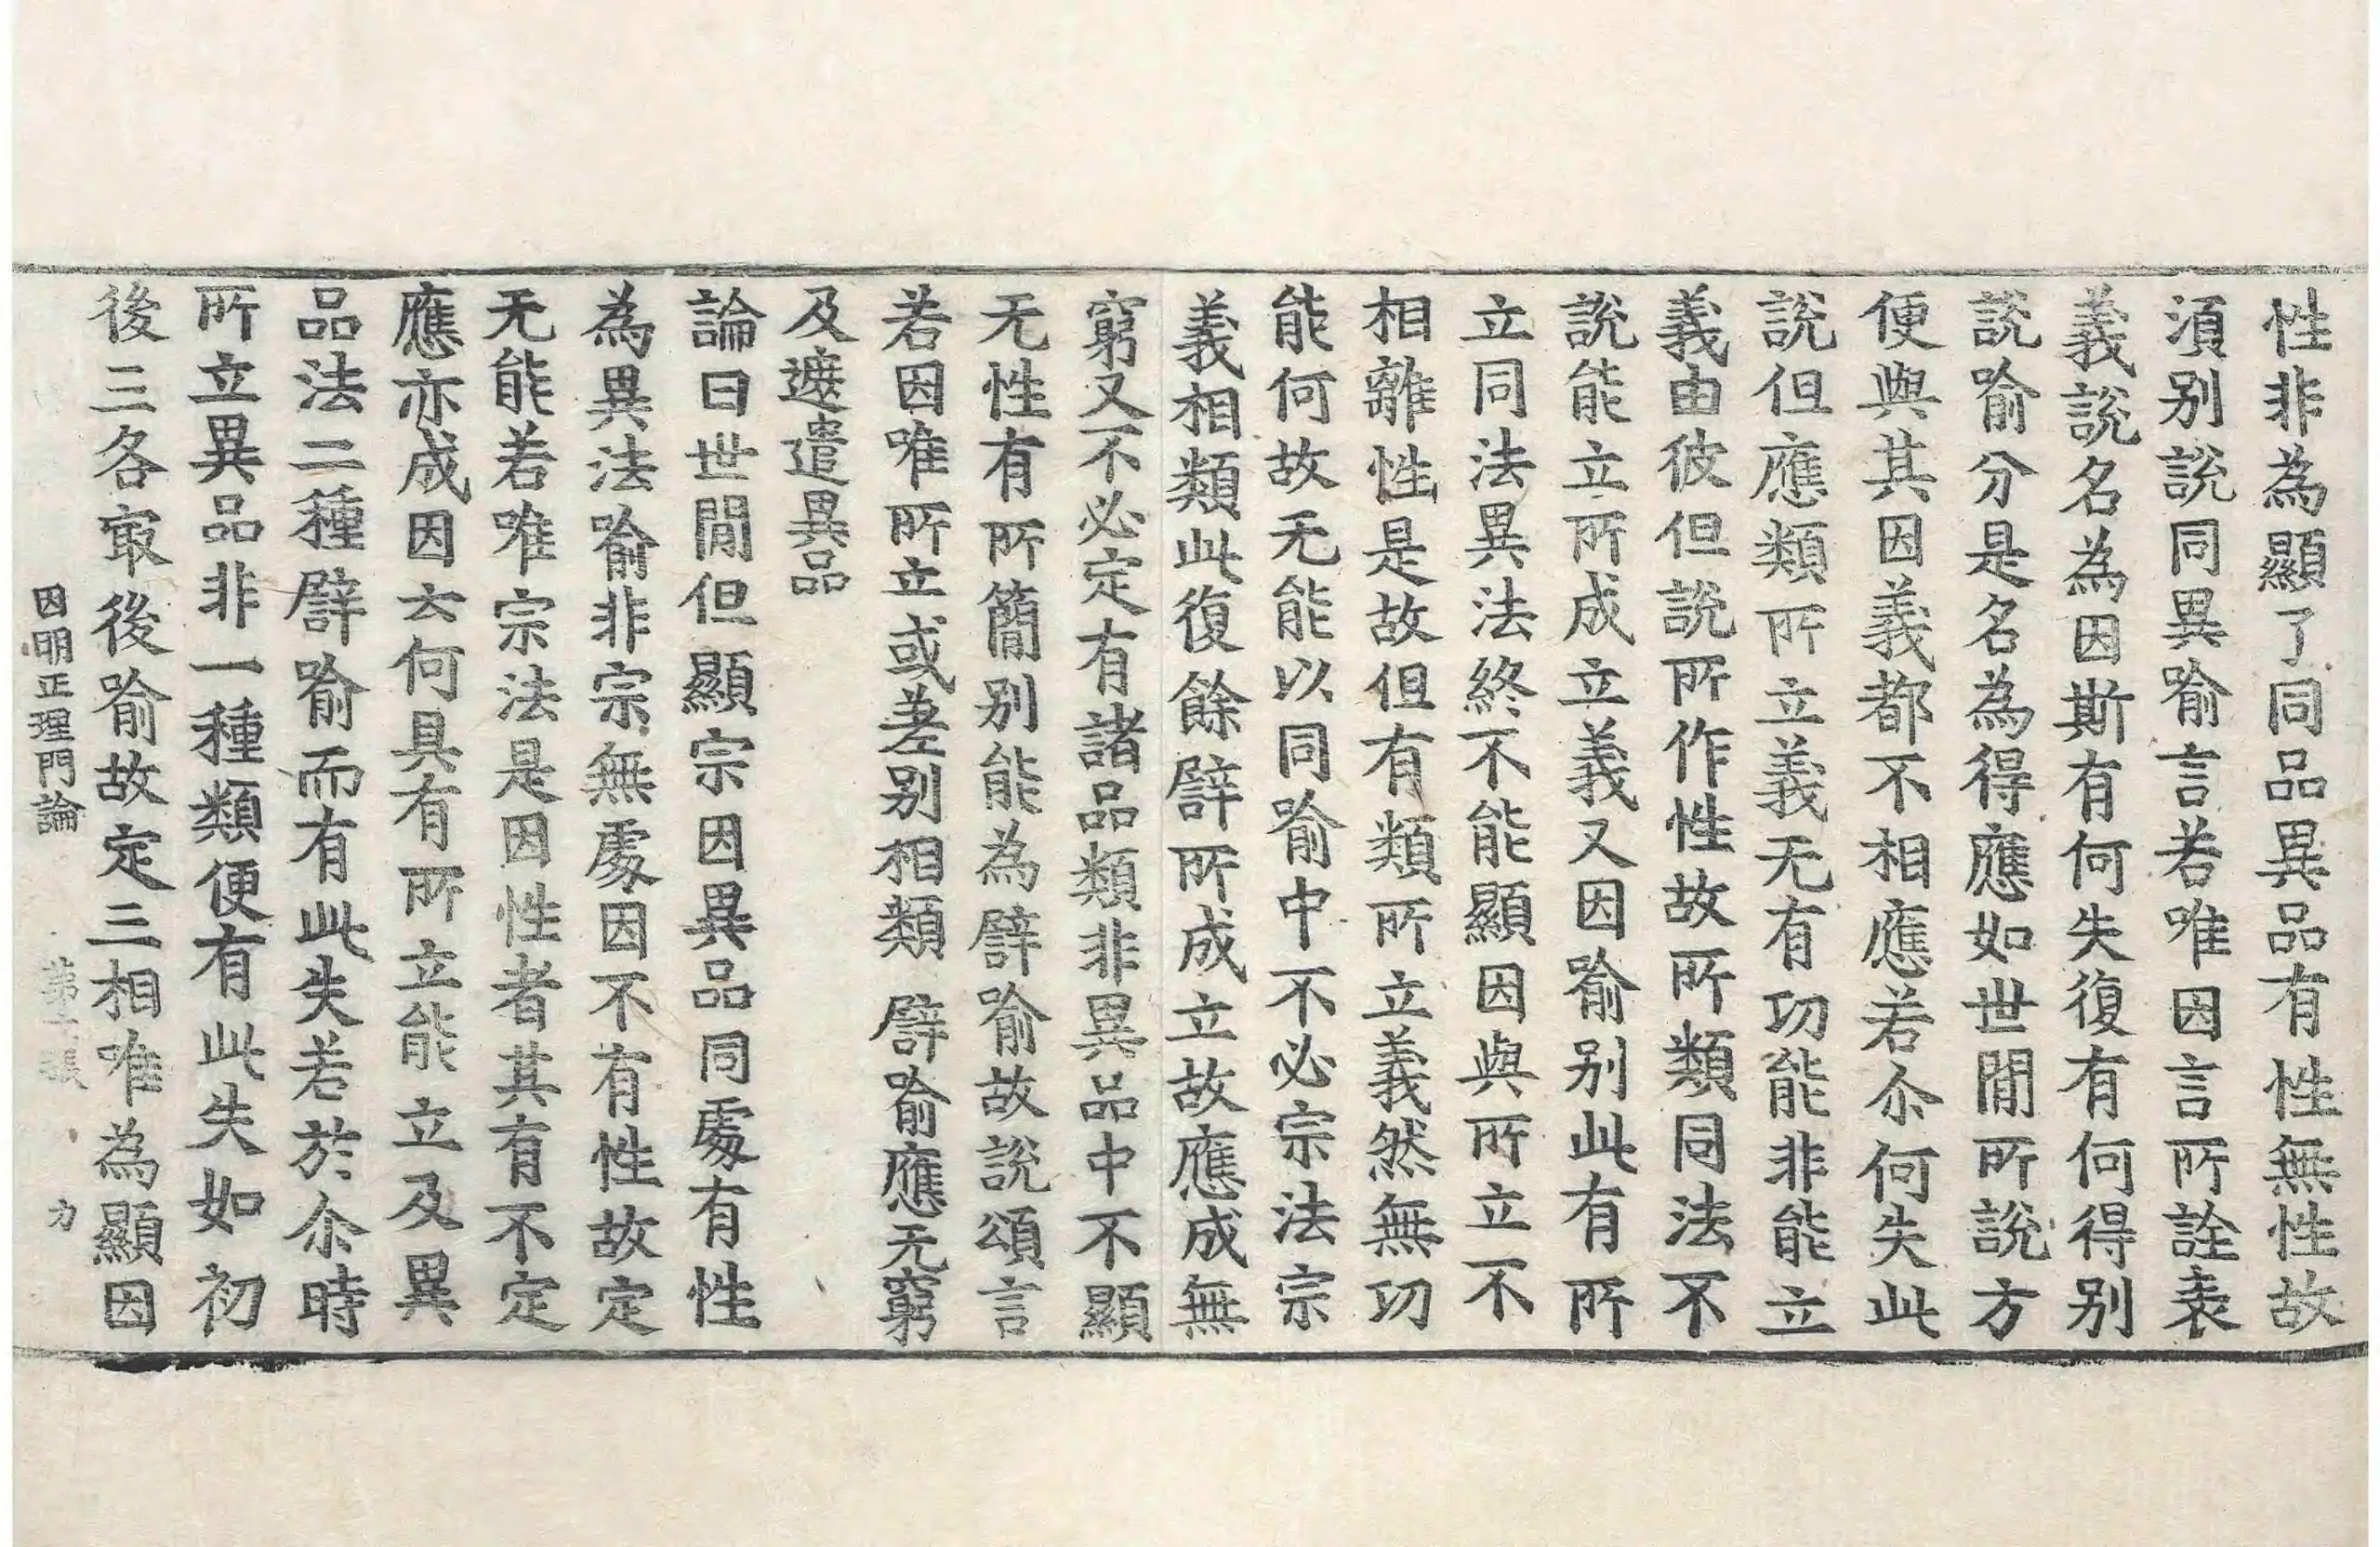 性非為顯了同品異品有性無性故
湏别說同異喻言若唯因言所詮表
義說名為因斯有何失復有何得别
說喻分是名為得應如世閒所說方
便與其因義都不相應若尒何失此
說但應類所立義无有功能非能立
義由彼但說所作性故所類同法不
說能立所成立義又因喻别此有所
立同法異法終不能顯因與所立不
相離性是故但有類所立義然無功
能何故无能以同喻中不必宗法宗
義相類此復餘譬所成立故應成無
窮又不必定有諸品類非異品中不顯
无性有所簡别能為譬喻故說頌言
若因唯所立或差别相類 譬喻應无窮
及遮遣異品
論曰世閒但顯宗因異品同處有性
為異法喻非宗無處因不有性故定
无能若唯宗法是因性者其有不定
應亦成因云何具有所立能立及異
品法二種譬喻而有此失若於尒時
所立異品非一種類便有此失如初
後三各㝡後喻故定三相唯為顯因
因明正理門論 第 張 力